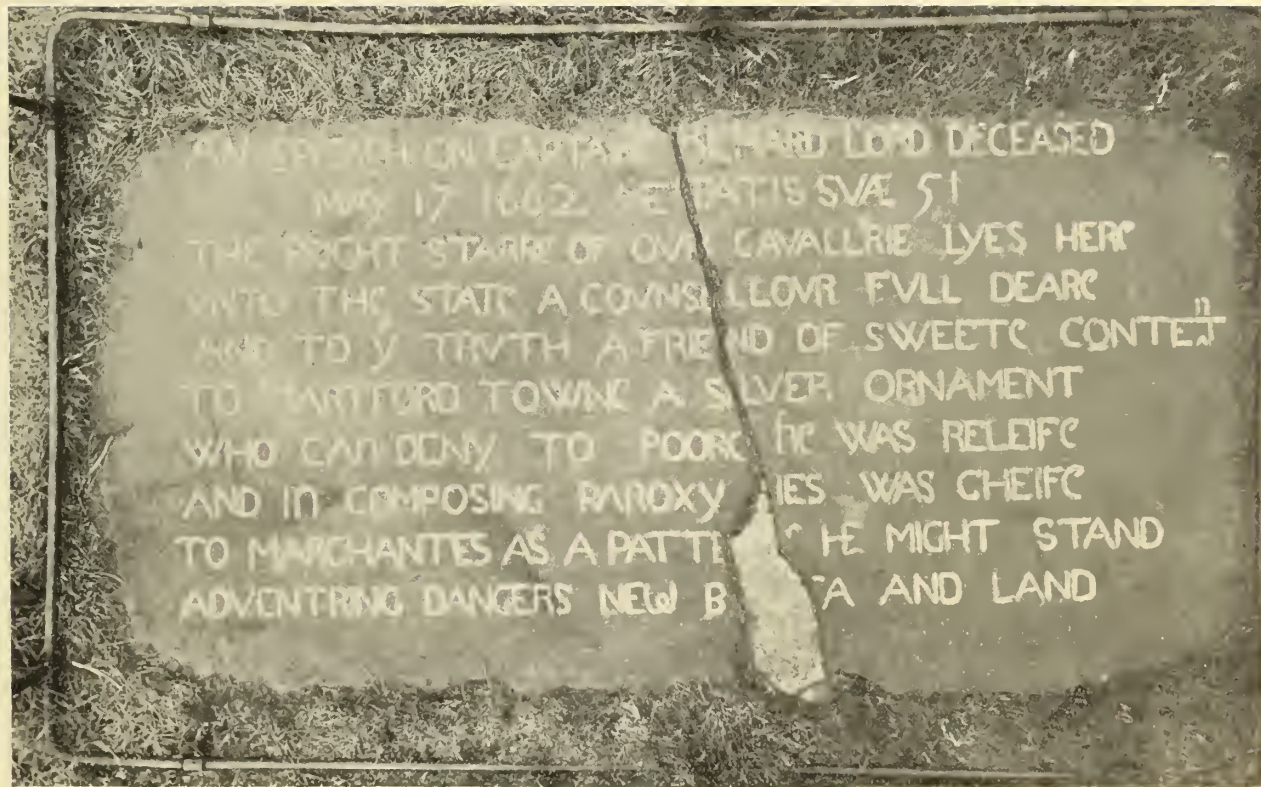 AN ON CAPTAIN RICHARD LORD DECEASED
MAY 17 1662 ÆTATIS SVÆ 51
THE BRIGHT STARRE OF OVR CAVALLRIE LYES HERE
VNTO THE STATE A COVNSELLOVR FVLL DEARE
AND TO Y TRVTH A FRIEND OF SWEETE CONTEⁿT
TO HARTFORD TOWNE A SILVER ORNAMENT
WHO CAN DENY TO POORE HE WAS RELEIFE
AND IN COMPOSING PAROXY IES WAS CHEIFE
TO MARCHANTES AS A PATTE HE MIGHT STAND
ADVENTRING DANGERS NEW B EA AND LAND